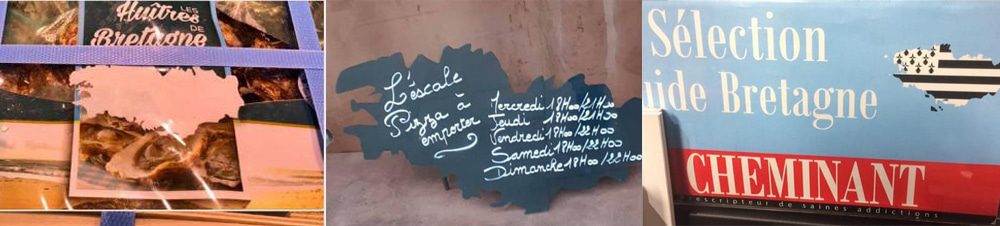 LES
Huîtres
DE
Bretagne
L'escale
Pizza
à
emporter
Mercredi 18H00/21H30
Jeudi 18H00/21H30
Vendredi 18H00/22H00
Samedi 18H00/22H00
Dimanche 18H00/22H00
Sélection
uide Bretagne
CHEMINANT
escripteur de saines addictions